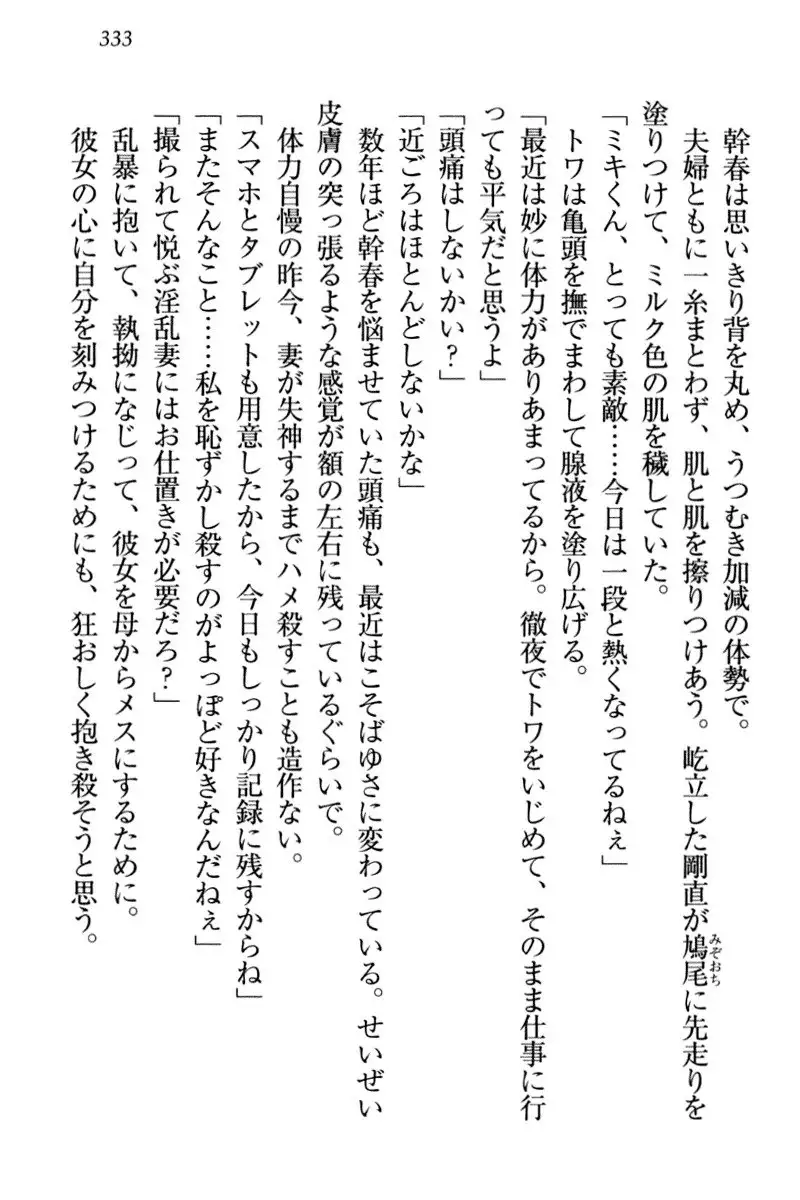 333
幹春は思いきり背を丸め、うつむき加減の体勢で。
夫婦ともに一糸まとわず、肌と肌を擦りつけあう。屹立した剛直が鳩尾に先走りを
みぞおち
塗りつけて、ミルク色の肌を穢していた。
「ミキくん、とっても素敵……今日は一段と熱くなってるねぇ」
トワは亀頭を撫でまわして腺液を塗り広げる。
「最近は妙に体力がありあまってるから。徹夜でトワをいじめて、そのまま仕事に行
っても平気だと思うよ」
「頭痛はしないかい?」
「近ごろはほとんどしないかな」
数年ほど幹春を悩ませていた頭痛も、最近はこそばゆさに変わっている。せいぜい
皮膚の突っ張るような感覚が額の左右に残っているぐらいで。
体力自慢の昨今、妻が失神するまでハメ殺すことも造作ない。
「スマホとタブレットも用意したから、今日もしっかり記録に残すからね」
「またそんなこと……私を恥ずかし殺すのがよっぽど好きなんだねぇ」
「撮られて悦ぶ淫乱妻にはお仕置きが必要だろ?」
乱暴に抱いて、執拗になじって、彼女を母からメスにするために。
彼女の心に自分を刻みつけるためにも、狂おしく抱き殺そうと思う。